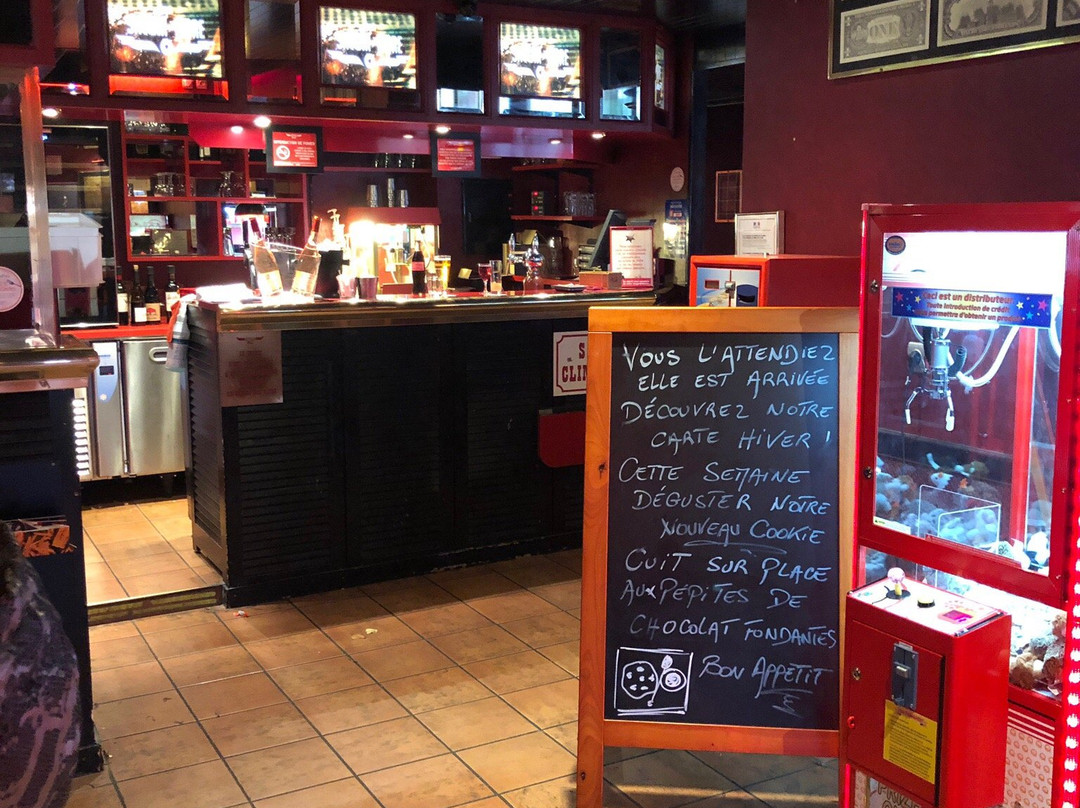 ONE
S
CLIM
Ceci est un distributeur
Toute introduction de crédit
permettra d'obtenir un produit
VOUS L'ATTENDIEZ
ELLE EST ARRIVÉE
DÉCOUVREZ NOTRE
CARTE HIVER !
CETTE SEMAINE
DÉGUSTER NOTRE
NOUVEAU COOKIE
CUIT SUR PLACE
AUX PÉPITES DE
CHOCOLAT FONDANTES
BON APPETIT